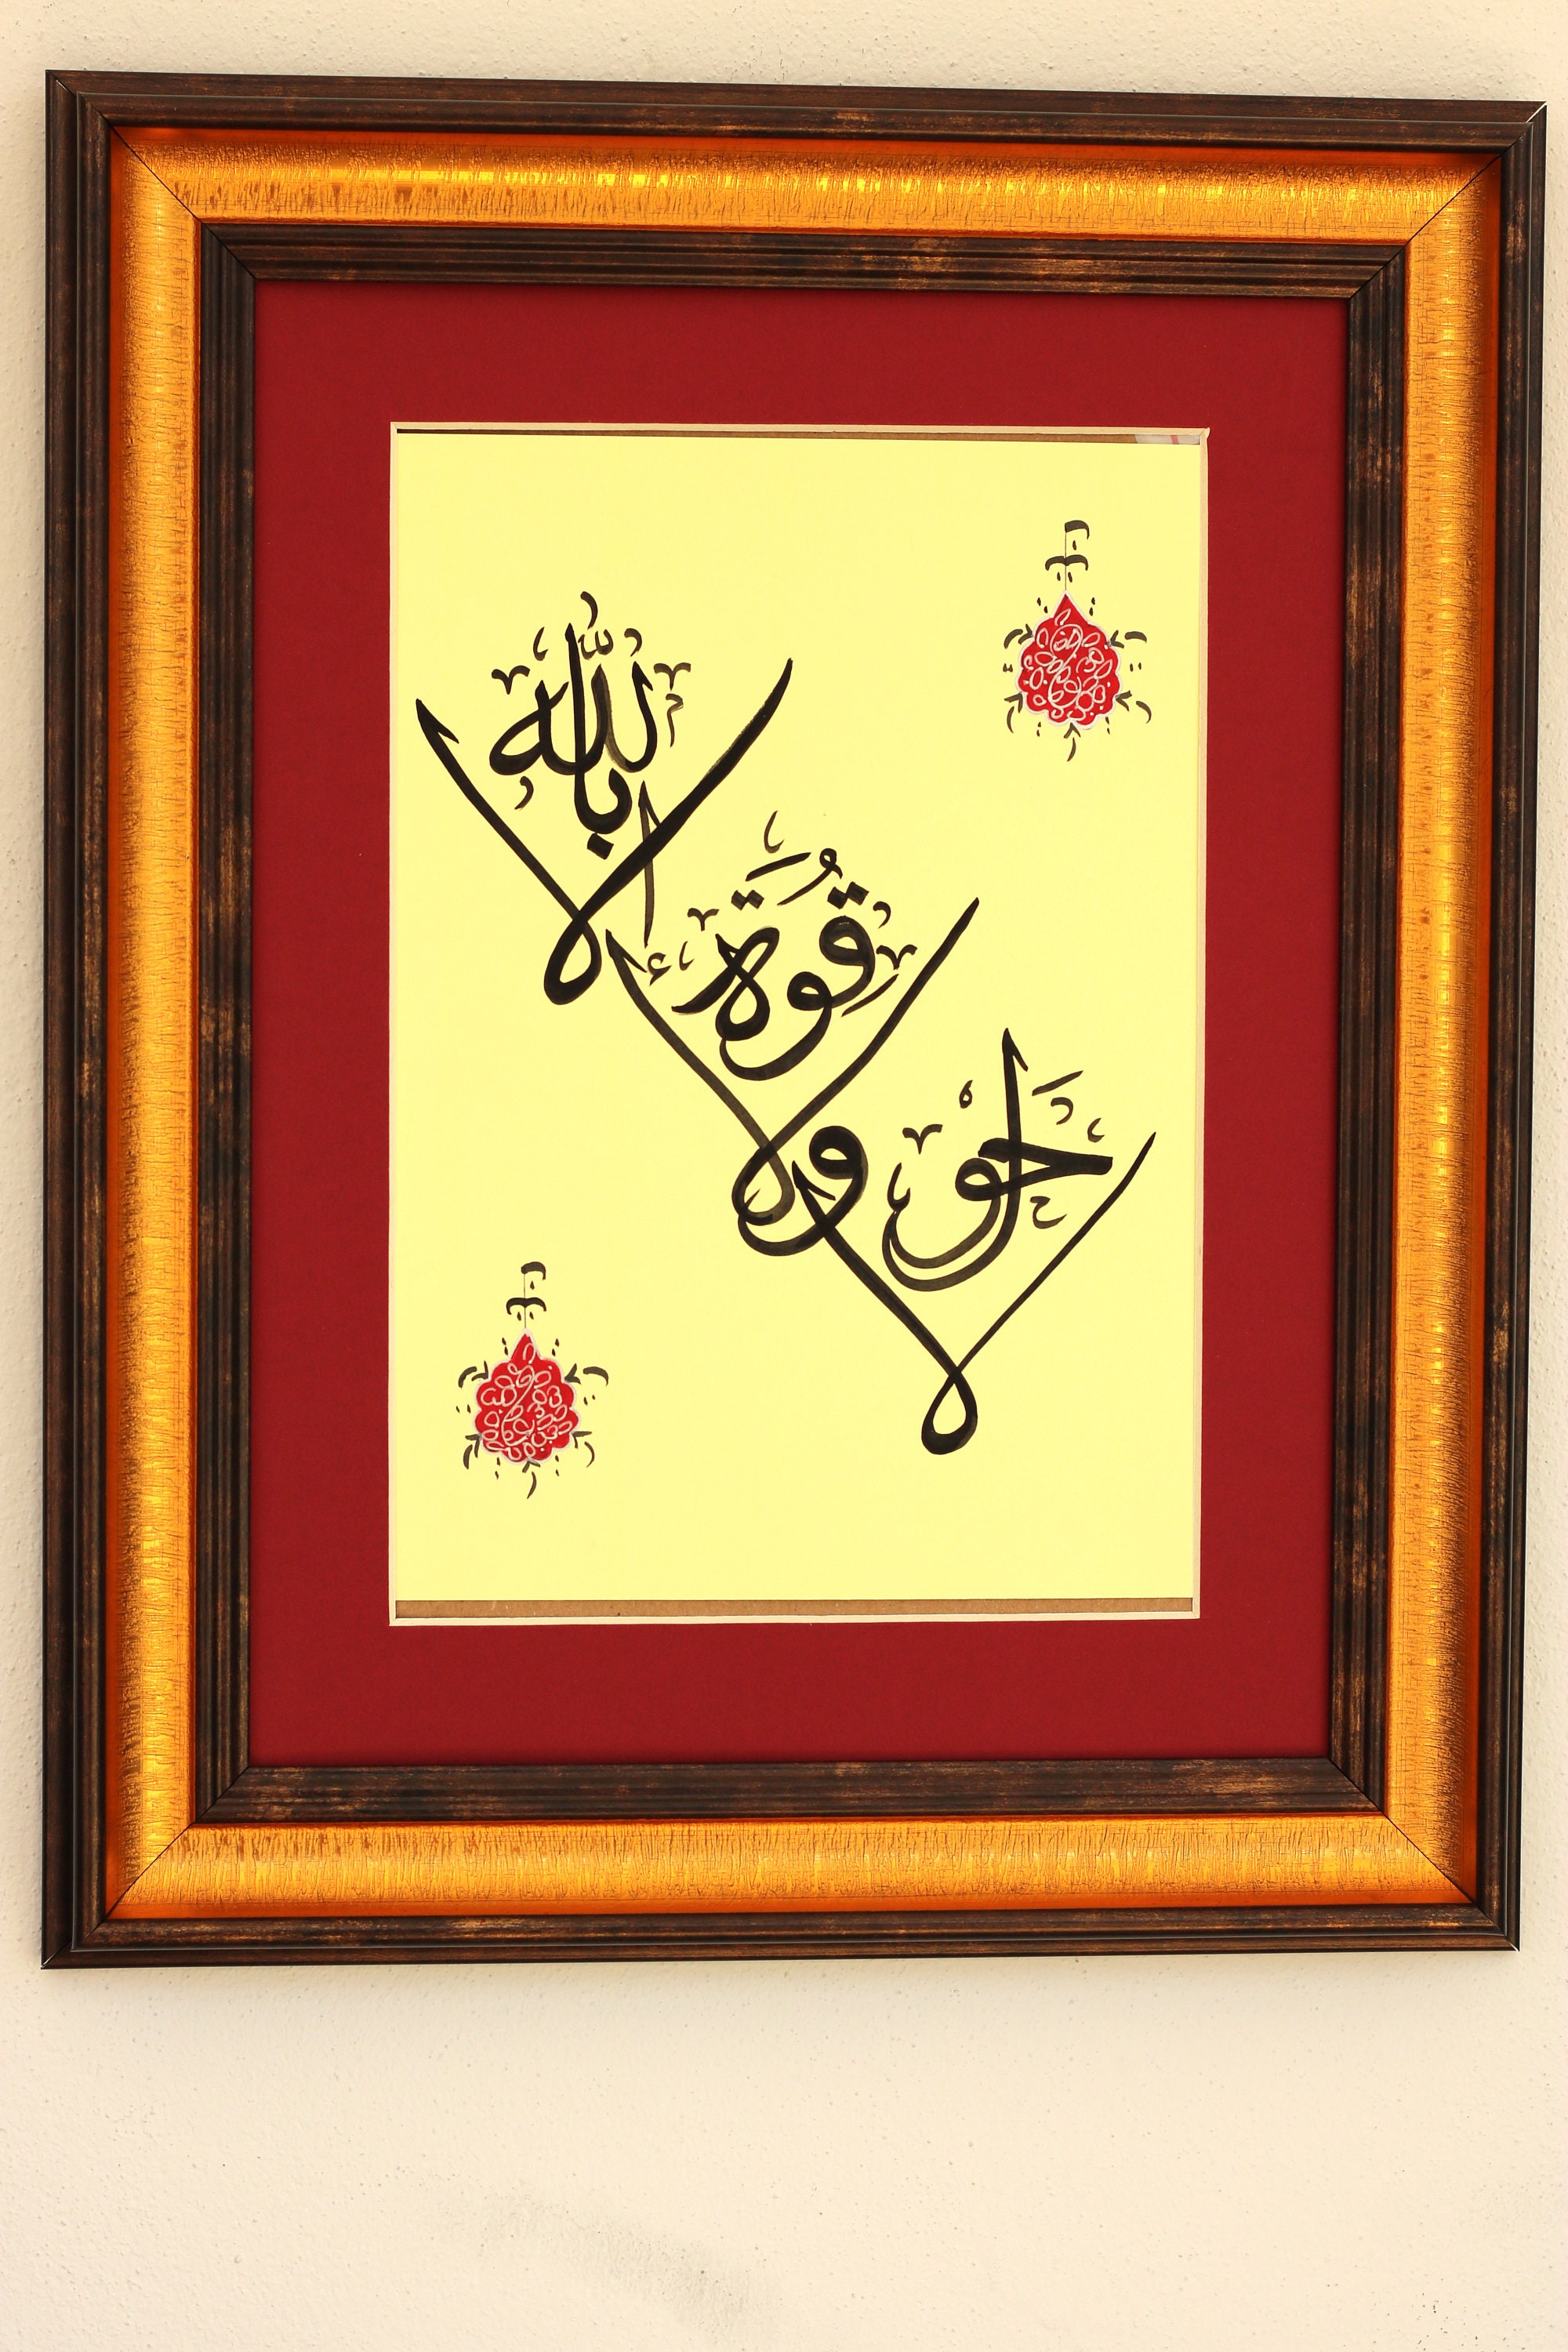 لا حَول
ولا قُوَّة
إلا باللّه